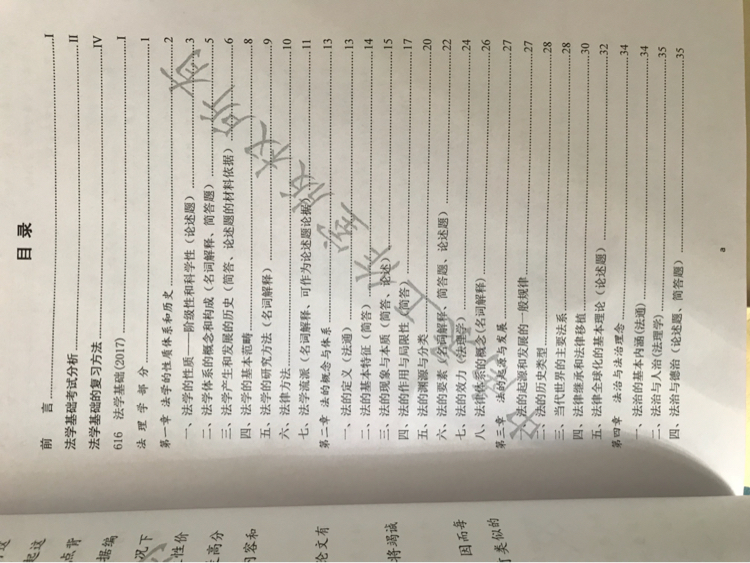 目 录
前 言……I
法学基础考试分析……II
法学基础的复习方法……IV
616 法学基础(2017)……I
法 理 学 部 分……1
第一章 法学的性质体系和历史……2
一、法学的性质——阶级性和科学性（论述题）……3
二、法学体系的概念和构成（名词解释、简答题）……5
三、法学产生和发展的历史（简答、论述题的材料依据）……6
四、法学的基本范畴……8
五、法学的研究方法（名词解释）……9
六、法律方法……10
七、法学流派（名词解释、可作为论述题论据）……11
第二章 法的概念与体系……13
一、法的定义（法通）……13
二、法的基本特征（简答）……14
三、法的现象与本质（简答、论述）……15
四、法的作用与局限性（简答）……17
五、法的渊源与分类……20
六、法的要素（名词解释、简答题、论述题）……22
七、法的效力（法理学）……24
八、法律体系的概念（名词解释）……26
第三章 法的起源与发展……27
一、法的起源和发展的一般规律……27
二、法的历史类型……28
三、当代世界的主要法系……28
四、法律继承和法律移植……30
五、法律全球化的基本理论（论述题）……32
第四章 法治与法治理念……34
一、法治的基本内涵(法通)……34
二、法治与人治(法理学)……35
四、法治与德治（论述题、简答题）……35
a
版权所有
起这
点背
据编
况下
性价
高分
内容和
论文有
将竭诚
因而每
类似的